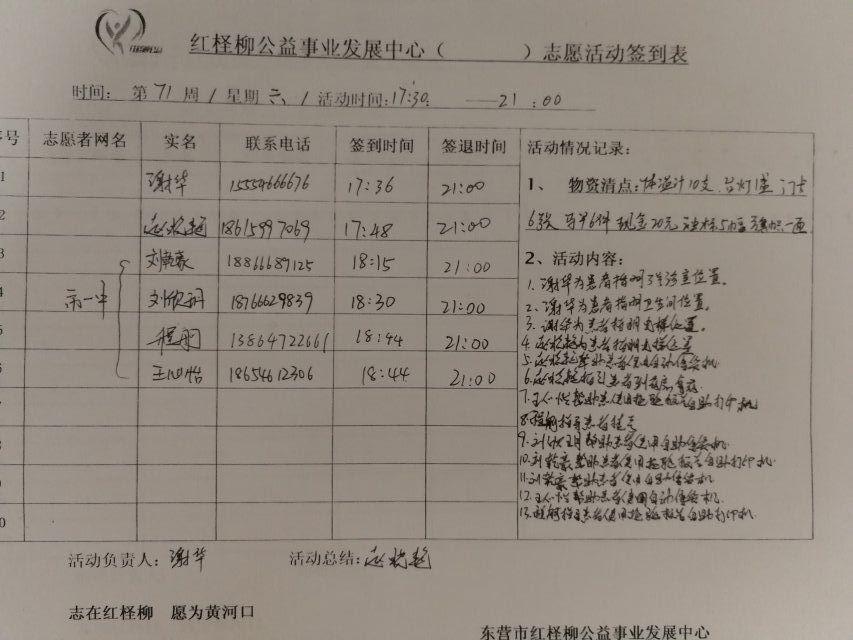 红柽柳公益事业发展中心（ ）志愿活动签到表
时间： 第 71 周 / 星期 六 / 活动时间:17:30 —— 21:00
号 志愿者网名 实名 联系电话 签到时间 签退时间 活动情况记录：
1 谢华 15554666676 17:36 21:00
1、 物资清点：体温计10支、台灯1盏
2 18615997069 17:48 21:00
6张 马甲6件 现金20元 一面
3 刘乾豪 18866687125 18:15 21:00
2、活动内容：
1、谢华为患者指明 位置。
4 东一中 刘欣 18766629839 18:30 21:00
2、谢华为患者指明卫生间位置。
3、谢华为患者指明 位置。
5 程 13864722661 18:44 21:00
4、 为患者指明 位置
5、 帮助患者使用自动售货机
6 王心怡 18654612306 18:44 21:00
6、 指引患者到药房拿药
7 7、王心怡帮助患者使用检验报告自助打印机
8、程 指导患者挂号
8 9、刘欣 帮助患者使用自动售货机
10、刘乾豪帮助患者使用检验报告自助打印机
11、刘乾豪帮助患者使用自动售货机
9 12、王心怡帮助患者使用自动售货机.
0 13、程 指导患者使用检验报告自助打印机.
活动负责人：谢华 活动总结：
志在红柽柳 愿为黄河口
东营市红柽柳公益事业发展中心